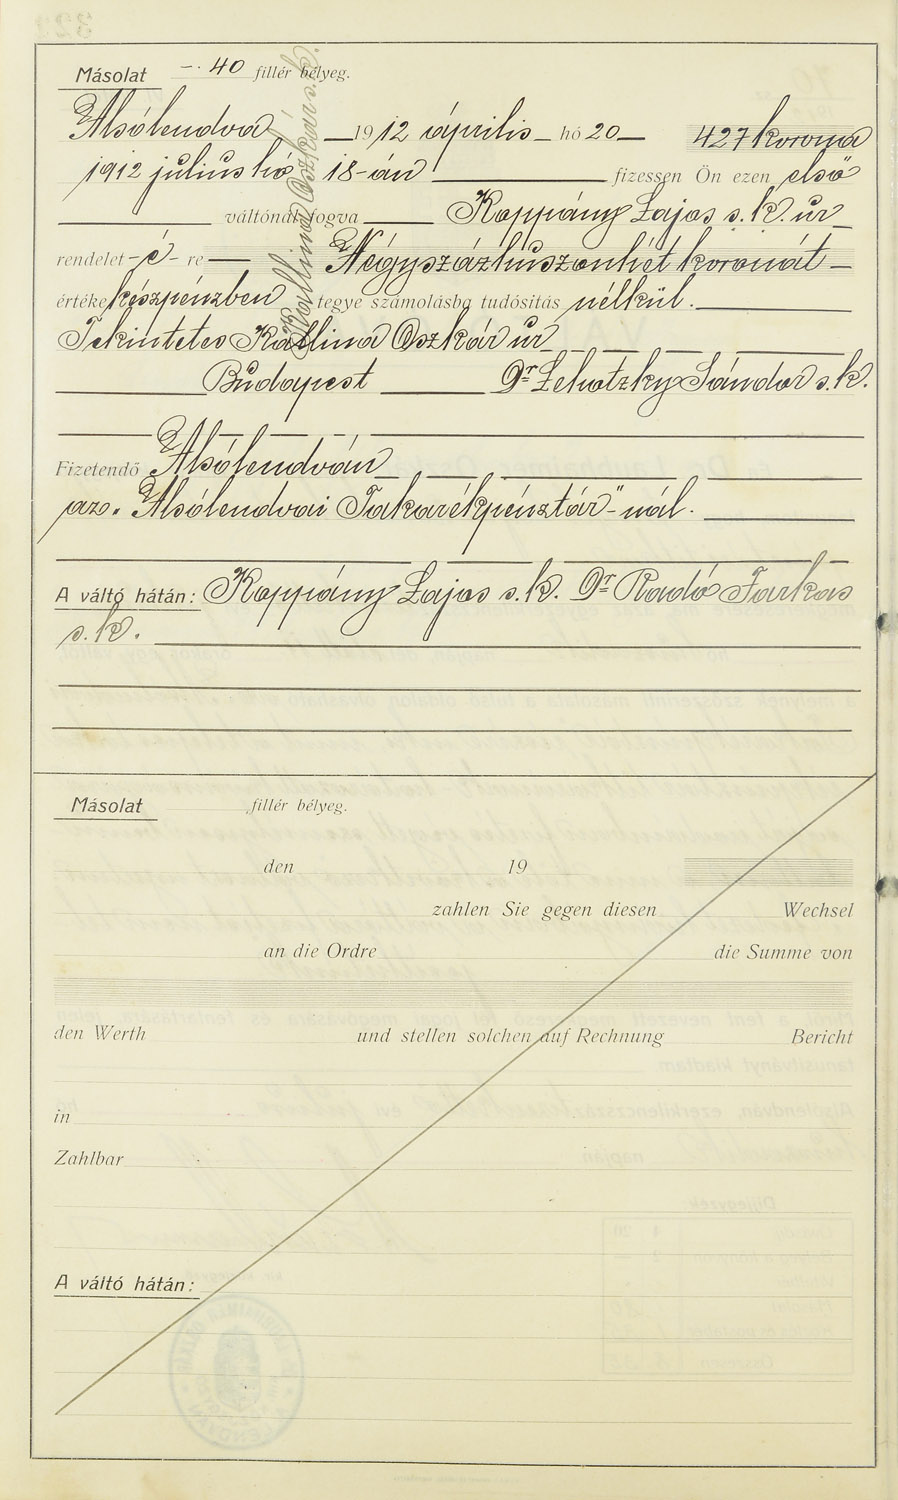 Másolat —·40 fillér bélyeg.
Alsólendva 1912 április hó 20 427 korona
1912 julius hó 18-án fizessen Ön ezen első
váltónál fogva Koppány Lajos s.k. úr
rendelet-é-re Négyszázhuszonhét koronát
értéke készpénzben tegye számolásba tudósitás nélkül.
Tekintetes Kallina Oszkár úr
Budapest Dr Lehotzky Sándor s.k.
Kallina Oszkár s.k.
Fizetendő Alsólendván
az „Alsólendvai Takarékpénztár"-nál.
A váltó hátán: Koppány Lajos s.k. Dr Radó Farkas
s.k.
Másolat fillér bélyeg.
den 19
zahlen Sie gegen diesen Wechsel
an die Ordre die Summe von
den Werth und stellen solchen auf Rechnung Bericht
in
Zahlbar
A váltó hátán: